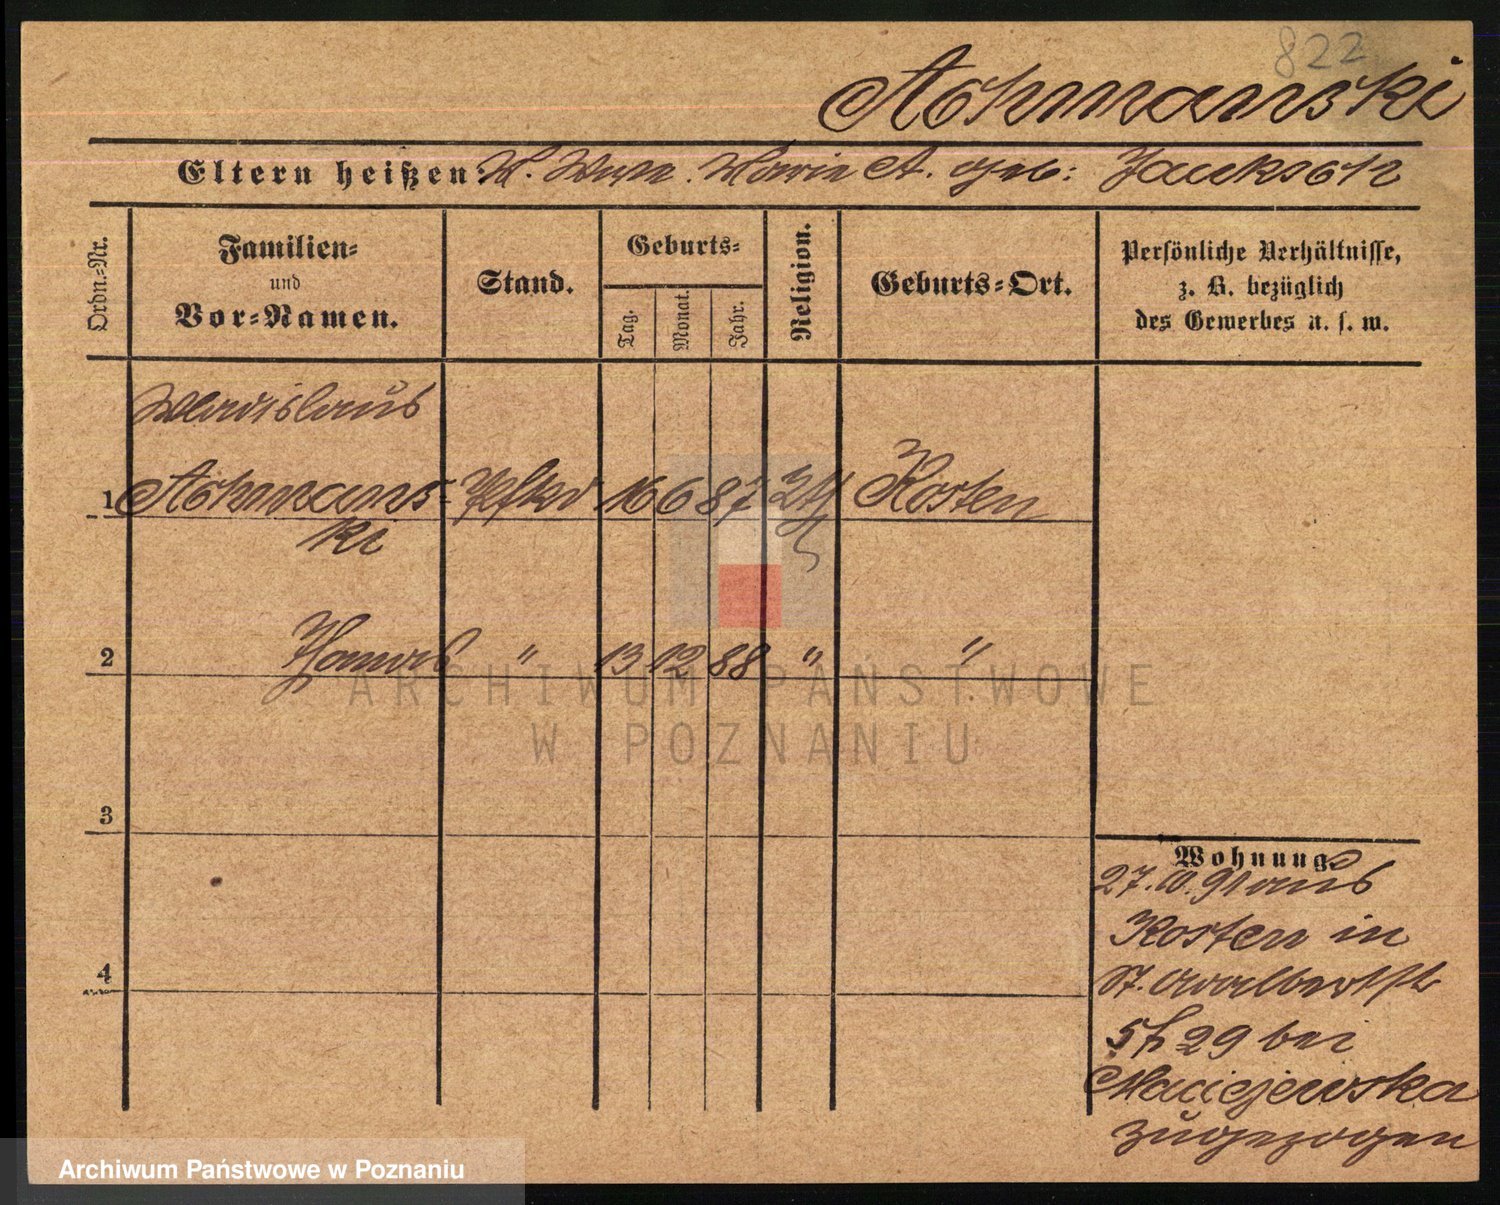 822
Achmanski
Eltern heißen: W. Wwe. Marie A. geb:
Ordn.=Nr.
Familien=
und
Vor=Namen.
Stand.
Geburts=
Tag.
Monat.
Jahr.
Religion.
Geburts=Ort.
Persönliche Verhältnisse,
z. B. bezüglich
des Gewerbes u. s. w.
Wladislaus
1 Achmans= 16 6 87 Kosten
ki
2 " 13 12 88 " "
3
4
Wohnung
27.10.91 aus
Kosten in
St. Adalbertstr
29 bei
Maciejewska
zugezogen
ARCHIWUM PAŃSTWOWE
W POZNANIU
Archiwum Państwowe w Poznaniu